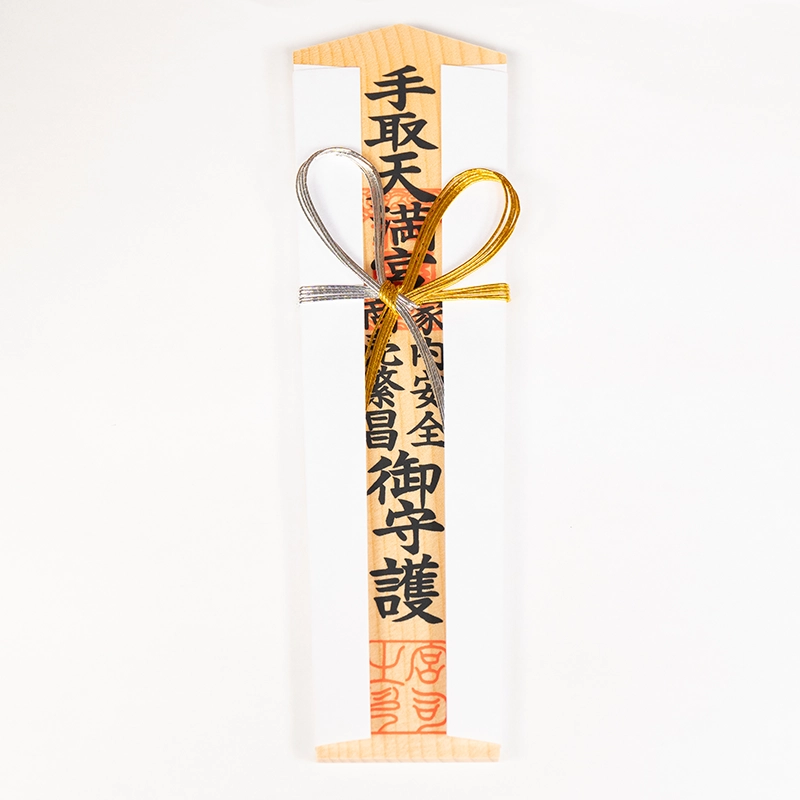 手取天満宮
家内安全
商売繁昌
御守護
宮司